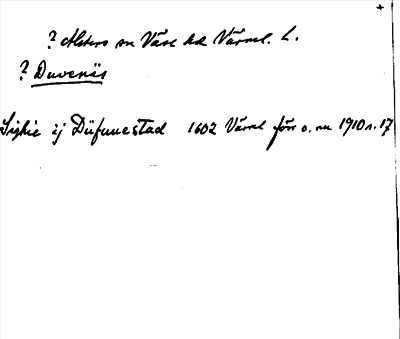 ? Alsters sn Väse hd Värml. L.
? Duvenäs
Sighie ij Düfuuestad 1602 Värml förr o. nu 1910 s. 17